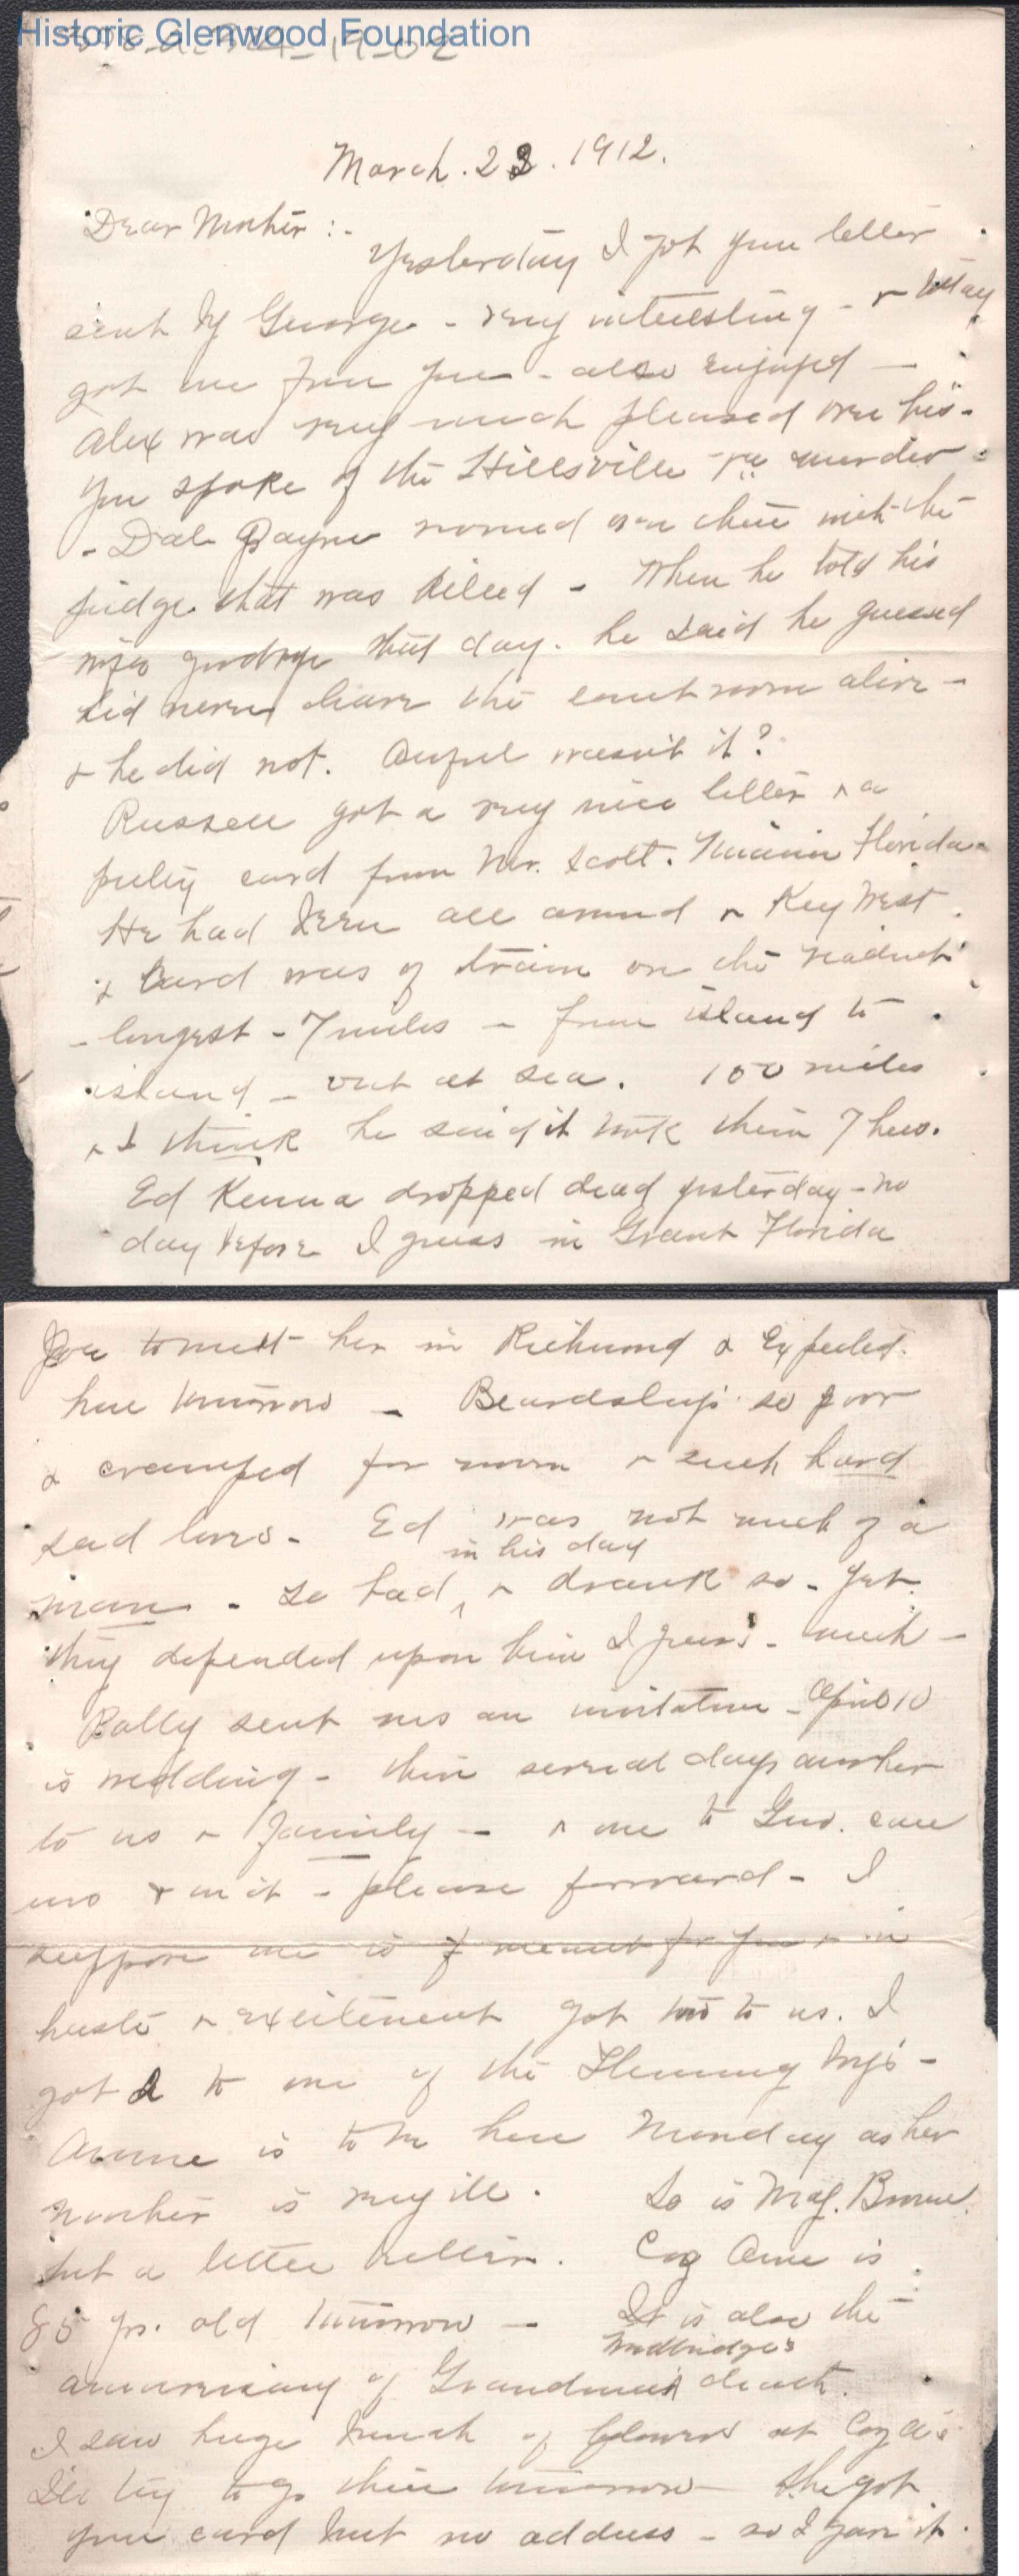 Historic Glenwood Foundation
March. 23. 1912.
Dear Mother :-
Yesterday I got your letter
sent by George - very interesting - & today
got one from you - also enjoyed -
Alex was very much pleased over his -
You spoke of the Hillsville murder
- Dal Payne roomed over there with the
judge that was killed - When he told his
wife goodbye that day. he said he guessed
hid never leave the court room alive -
& he did not. Awful wasn't it?
Russell got a very nice letter & a
pretty card from Mr. Scott. Miami Florida -
He had been all around & Key West.
& Card was of train on the viaduct
- longest - 7 miles - from island to
island - out at sea. 100 miles
& I think he said it took them 7 hrs.
Ed Kenna dropped dead yesterday - no
day before I guess in Grant Florida
Joe to meet her in Richmond & Expected
here tomorrow - Beardsleys so poor
& cramped for room & such hard
sad lives. Ed was not much of a
in his day
man - so bad & drank so - yet
they depended upon him I guess - much -
Polly sent us an invitation - April 10
is wedding - then several days another
to us & family - & one to Geo. care
us & on it - please forward - I
suppose one is meant for you & in
haste & excitement got two to us. I
got 2 to one of the Fleming boys -
Annie is to be here Monday as her
Mother is very ill. So is Maj. Browne.
but a little better. Coz Ame is
85 yrs. old tomorrow - It is also the
Woodbridge's
anniversary of Grandma's death.
I saw huge bunch of flowers at Coz A's
I'll try to go there tomorrow - She got
your card but no address - so I gave it.